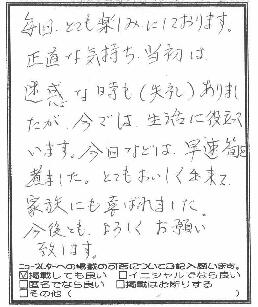 毎回、とても楽しみにしております。
正直な気持ち、当初は
迷惑な時も(失礼)ありまし
たが、今では生活に役立って
います。今回などは、早速筍を
煮ました。とてもおいしく出来て、
家族にも喜ばれました。
今後とも、よろしくお願い
致します。
ニュースレターへの掲載の可否についてご記入願います。
☑掲載しても良い □イニシャルでなら良い
□匿名でなら良い □掲載はお断りする
□その他(